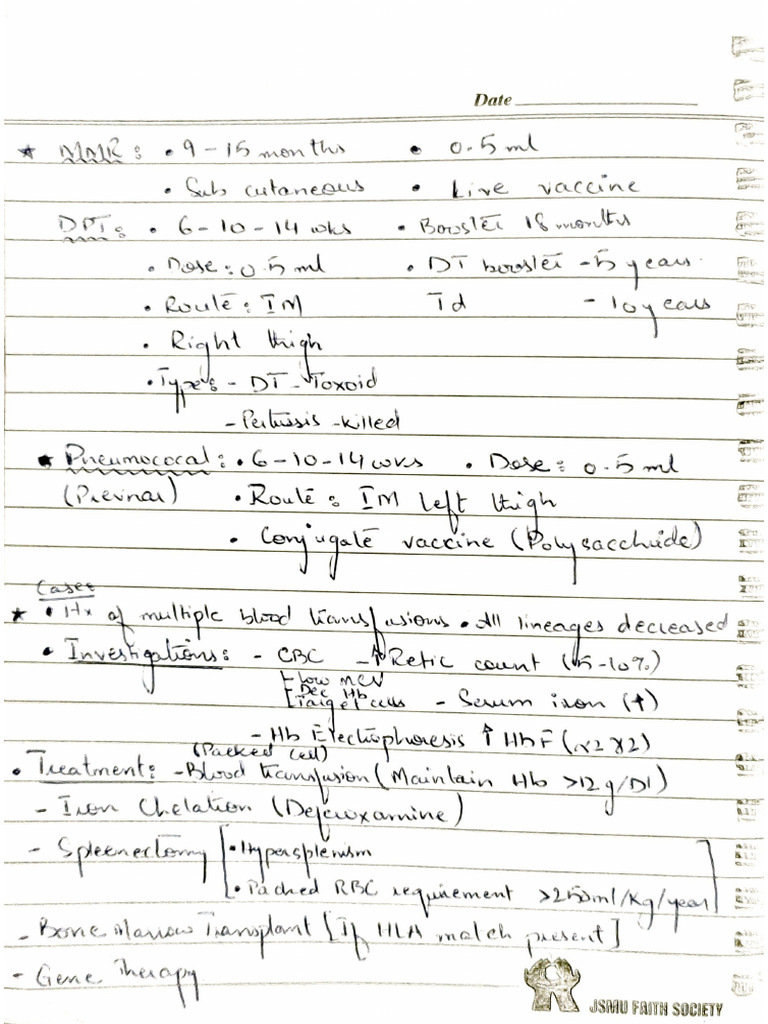 Date
★ MMR: • 9-15 months • 0.5 ml
• Sub cutaneous • Live vaccine
DPT: • 6-10-14 wks • Booster 18 months
• Dose: 0.5 ml • DT booster - 5 years
• Route: IM Td - 10 years
• Right thigh
• Types - DT - Toxoid
- Pertussis - killed
★ Pneumococal: • 6-10-14 wks • Dose: 0.5 ml
(Prevnar) • Route: IM left thigh
• Conjugate vaccine (Polysacchride)
Cases
★ • Hx of multiple blood transfusions • All lineages decreased
• Investigations: - CBC - ↑ Retic count (5-10%)
- Low MCV
- Dec Hb
- Target cells - Serum iron (↑)
- Hb Electrophoresis ↑ HbF (α2 γ2)
(Packed cell)
• Treatment: - Blood transfusion (Maintain Hb >12 g/Dl)
- Iron Chelation (Deferoxamine)
- Spleenectomy [• Hypersplenism
• Packed RBC requirement >250ml/Kg/year]
- Bone Marrow Transplant [If HLA match present]
- Gene Therapy
JSMU FAITH SOCIETY